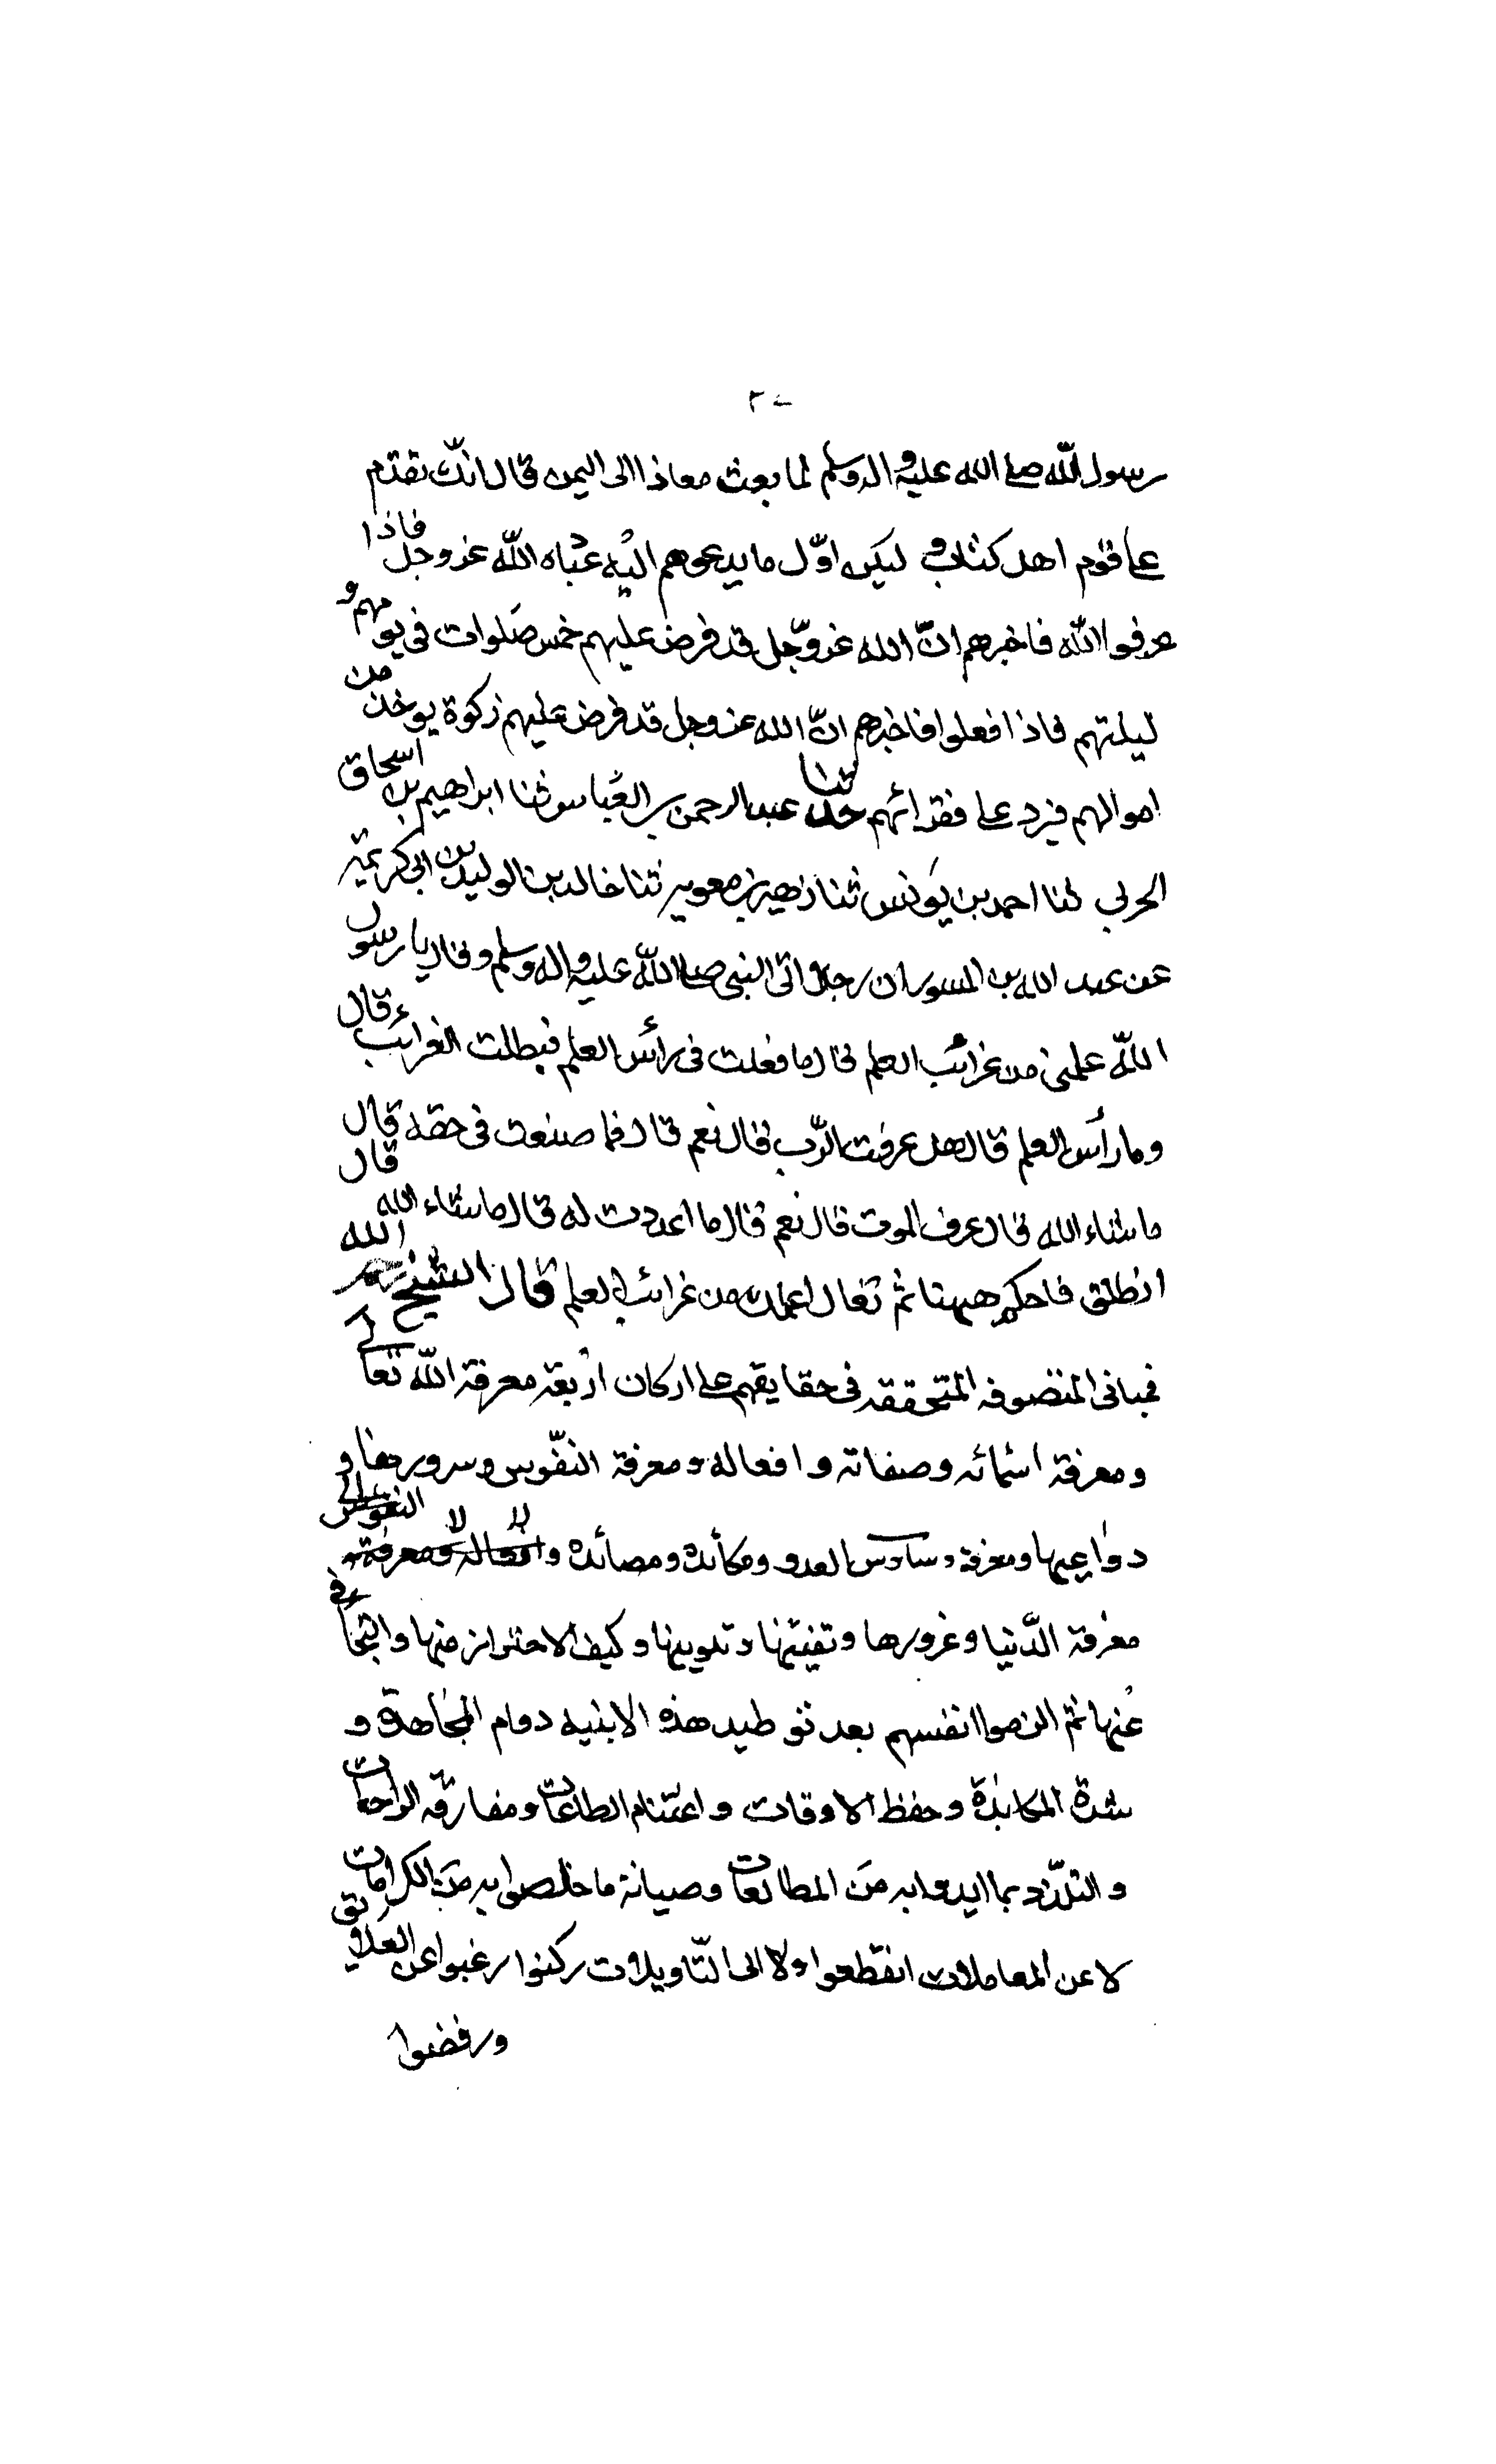 ٢٧
رسول الله صلى الله عليه واله وسلم لما بعث معاذا الى اليمن قال انك تقدم
على قوم اهل كتاب و ليكن اوّل ما يدعوهم اليه عباده الله عز وجل فاذا
عرفوا الله فاخبرهم انّ الله عز وجل قد فرض عليهم خمس صلوات في يومهم و
ليلتهم فاذا فعلوا فاخبرهم انّ الله عز وجل قد فرض عليهم زكوة يوخذ من
اموالهم فيرد على فقرائهم حدثنا عبد الرحمن بن العباس ثنا ابراهيم بن اسحاق
الحربي ثنا احمد بن يونس ثنا زهير بن معويه ثنا خالد بن الوليد بن ابي كريمة
عن عبد الله بن المسور ان رجلا اتى النبي صلى الله عليه واله وسلم وقال يا رسول
اللّه علمني من غرائب العلم قال ما فعلت في رأس العلم فيطلت الغرائب قال
وما رأس العلم قال هل عرفت الرّب قال نعم قال فما صنعت في حقه قال
ما شاء الله قال عرف الموت قال نعم قال ما اعددت له قال ما شاء الله قال
انطلق فاحكم هيهنا ثم تعال اعملك من غرائب العلم قال الشيخ رحمه الله
فمبانى المتصوفه المتحققه في حقايقهم على اركان اربعة معرفة اللّه تعالى
ومعرفة اسمائه وصفاته و افعاله ومعرفة النفّوس وسرورها و
دواعيها ومعرفة وساوس العدو ومكائده ومصائده و افعاله ومعرفة النفوس
معرفة الدّنيا وغرورها وتفنيتها وتلوينها وكيف الاحتراز منها والتجافى
عنها ثم الزموا انفسهم بعد توطيد هذه الابنيه دوام المجاهدة و
شدة المكابدة وحفظ الاوقات و اغتنام الطاعات ومفارقه الراحات
و التلذذ بما ايدوا به من المطالعات وصيانة ما خلصوا به من الكرامات
لا عن المعاملات انقطعوا ولا الى التّاويلات ركنوا رغبوا عن العلايق
ورفضوا